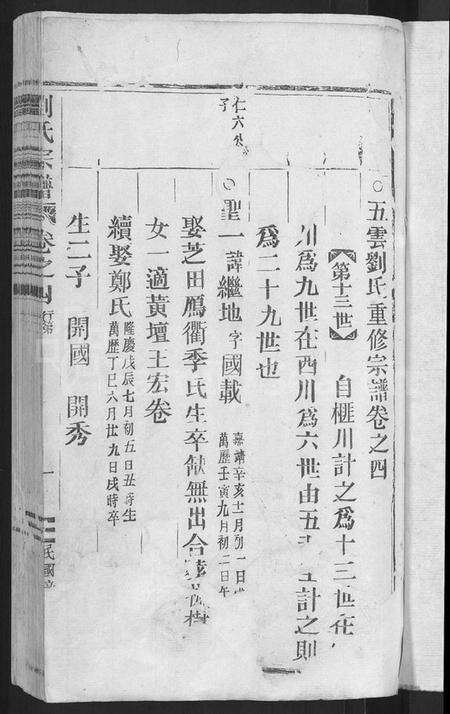 ○五雲劉氏重修宗譜卷之四
【第十三世】 自榧川計之爲十三世在
川爲九世在西川爲六世由五 計之則
爲二十九世也
仁六公
子
○聖一諱繼地字國載 嘉靖辛亥十一月初一日
萬歷壬寅九月初二日午
娶芝田鴈衢季氏生卒缺無出合葬 樹
女一適黃壇王宏卷
續娶鄭氏 隆慶戊辰七月初五日丑時生
萬歷丁巳六月廿九日戌時卒
生二子 開國 開秀
劉氏宗譜 卷之四 行第 一 民國